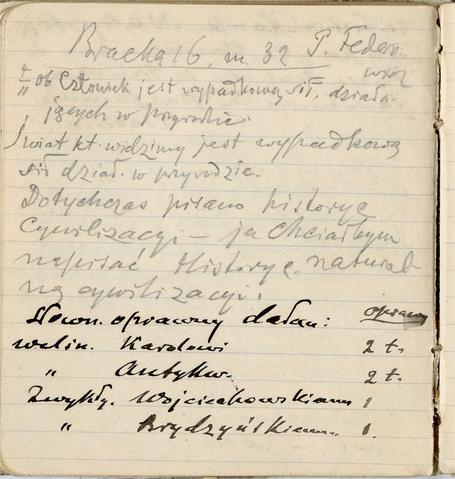 Bracka 16, m. 32 P. Feder.
ob Człowiek jest wypadkową sił. działa-
jących w przyrodzie.
Świat kt. widzimy jest wypadkową
sił dział. w przyrodzie.
Dotychczas pisano historyę
Cywilizacyi – ja chciałbym
napisać Historyę natural-
ną cywilizacyi.
Słown. oprawny dałem: oprawny
welin. Karolowi 2 t.
„ Antykw. 2 t.
Zwykły. Wojciechowskiemu 1
„ Brydzyńskiemu. 1.